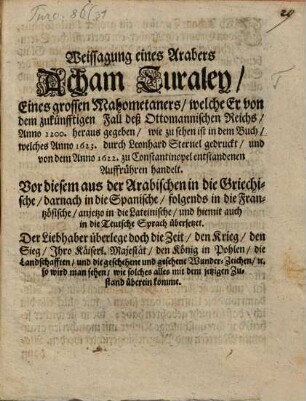 Turc. 86/31
29
Weissagung eines Arabers
Acham Turaley /
Eines grossen Mahometaners / welche Er von
dem zukünfftigen Fall deß Ottomannischen Reichs /
Anno 1200. heraus gegeben / wie zu sehen ist in dem Buch /
welches Anno 1623. durch Leonhard Sternel gedruckt / und
von dem Anno 1622. zu Constantinopel entstandenen
Auffrühren handelt.
Vor diesem aus der Arabischen in die Griechi-
sche / darnach in die Spanische / folgends in die Fran-
tzösische / anjetzo in die Lateinische / und hiemit auch
in die Teutsche Sprach übersetzet.
Der Liebhaber überlege doch die Zeit / den Krieg / den
Sieg / Ihro Käiserl. Majestät / den König in Pohlen / die
Landschafften / und die geschehene und gesehene Wunder-Zeichen / ꝛc.
so wird man sehen / wie solches alles mit dem jetzigen Zu-
stand überein komme.